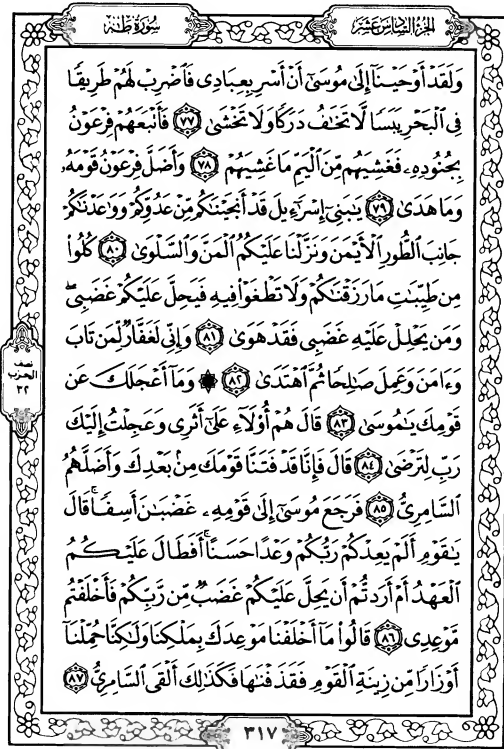 سُورَةُ طه
الجُزءُ السَّادِسَ عَشَرَ
وَلَقَدْ أَوْحَيْنَآ إِلَىٰ مُوسَىٰٓ أَنْ أَسْرِ بِعِبَادِى فَٱضْرِبْ لَهُمْ طَرِيقًا
فِى ٱلْبَحْرِ يَبَسًا لَّا تَخَٰفُ دَرَكًا وَلَا تَخْشَىٰ ٧٧ فَأَتْبَعَهُمْ فِرْعَوْنُ
بِجُنُودِهِۦ فَغَشِيَهُم مِّنَ ٱلْيَمِّ مَا غَشِيَهُمْ ٧٨ وَأَضَلَّ فِرْعَوْنُ قَوْمَهُۥ
وَمَا هَدَىٰ ٧٩ يَٰبَنِىٓ إِسْرَٰٓءِيلَ قَدْ أَنجَيْنَٰكُم مِّنْ عَدُوِّكُمْ وَوَٰعَدْنَٰكُمْ
جَانِبَ ٱلطُّورِ ٱلْأَيْمَنَ وَنَزَّلْنَا عَلَيْكُمُ ٱلْمَنَّ وَٱلسَّلْوَىٰ ٨٠ كُلُوا۟
مِن طَيِّبَٰتِ مَا رَزَقْنَٰكُمْ وَلَا تَطْغَوْا۟ فِيهِ فَيَحِلَّ عَلَيْكُمْ غَضَبِىۖ
وَمَن يَحْلِلْ عَلَيْهِ غَضَبِى فَقَدْ هَوَىٰ ٨١ وَإِنِّى لَغَفَّارٌ لِّمَن تَابَ
وَءَامَنَ وَعَمِلَ صَٰلِحًا ثُمَّ ٱهْتَدَىٰ ٨٢ ۞ وَمَآ أَعْجَلَكَ عَن
قَوْمِكَ يَٰمُوسَىٰ ٨٣ قَالَ هُمْ أُو۟لَآءِ عَلَىٰٓ أَثَرِى وَعَجِلْتُ إِلَيْكَ
رَبِّ لِتَرْضَىٰ ٨٤ قَالَ فَإِنَّا قَدْ فَتَنَّا قَوْمَكَ مِنۢ بَعْدِكَ وَأَضَلَّهُمُ
ٱلسَّامِرِىُّ ٨٥ فَرَجَعَ مُوسَىٰٓ إِلَىٰ قَوْمِهِۦ غَضْبَٰنَ أَسِفًاۚ قَالَ
يَٰقَوْمِ أَلَمْ يَعِدْكُمْ رَبُّكُمْ وَعْدًا حَسَنًاۚ أَفَطَالَ عَلَيْكُمُ
ٱلْعَهْدُ أَمْ أَرَدتُّمْ أَن يَحِلَّ عَلَيْكُمْ غَضَبٌ مِّن رَّبِّكُمْ فَأَخْلَفْتُم
مَّوْعِدِى ٨٦ قَالُوا۟ مَآ أَخْلَفْنَا مَوْعِدَكَ بِمَلْكِنَا وَلَٰكِنَّا حُمِّلْنَآ
أَوْزَارًا مِّن زِينَةِ ٱلْقَوْمِ فَقَذَفْنَٰهَا فَكَذَٰلِكَ أَلْقَى ٱلسَّامِرِىُّ ٨٧
نصف
الحزب
٣٢
٣١٧